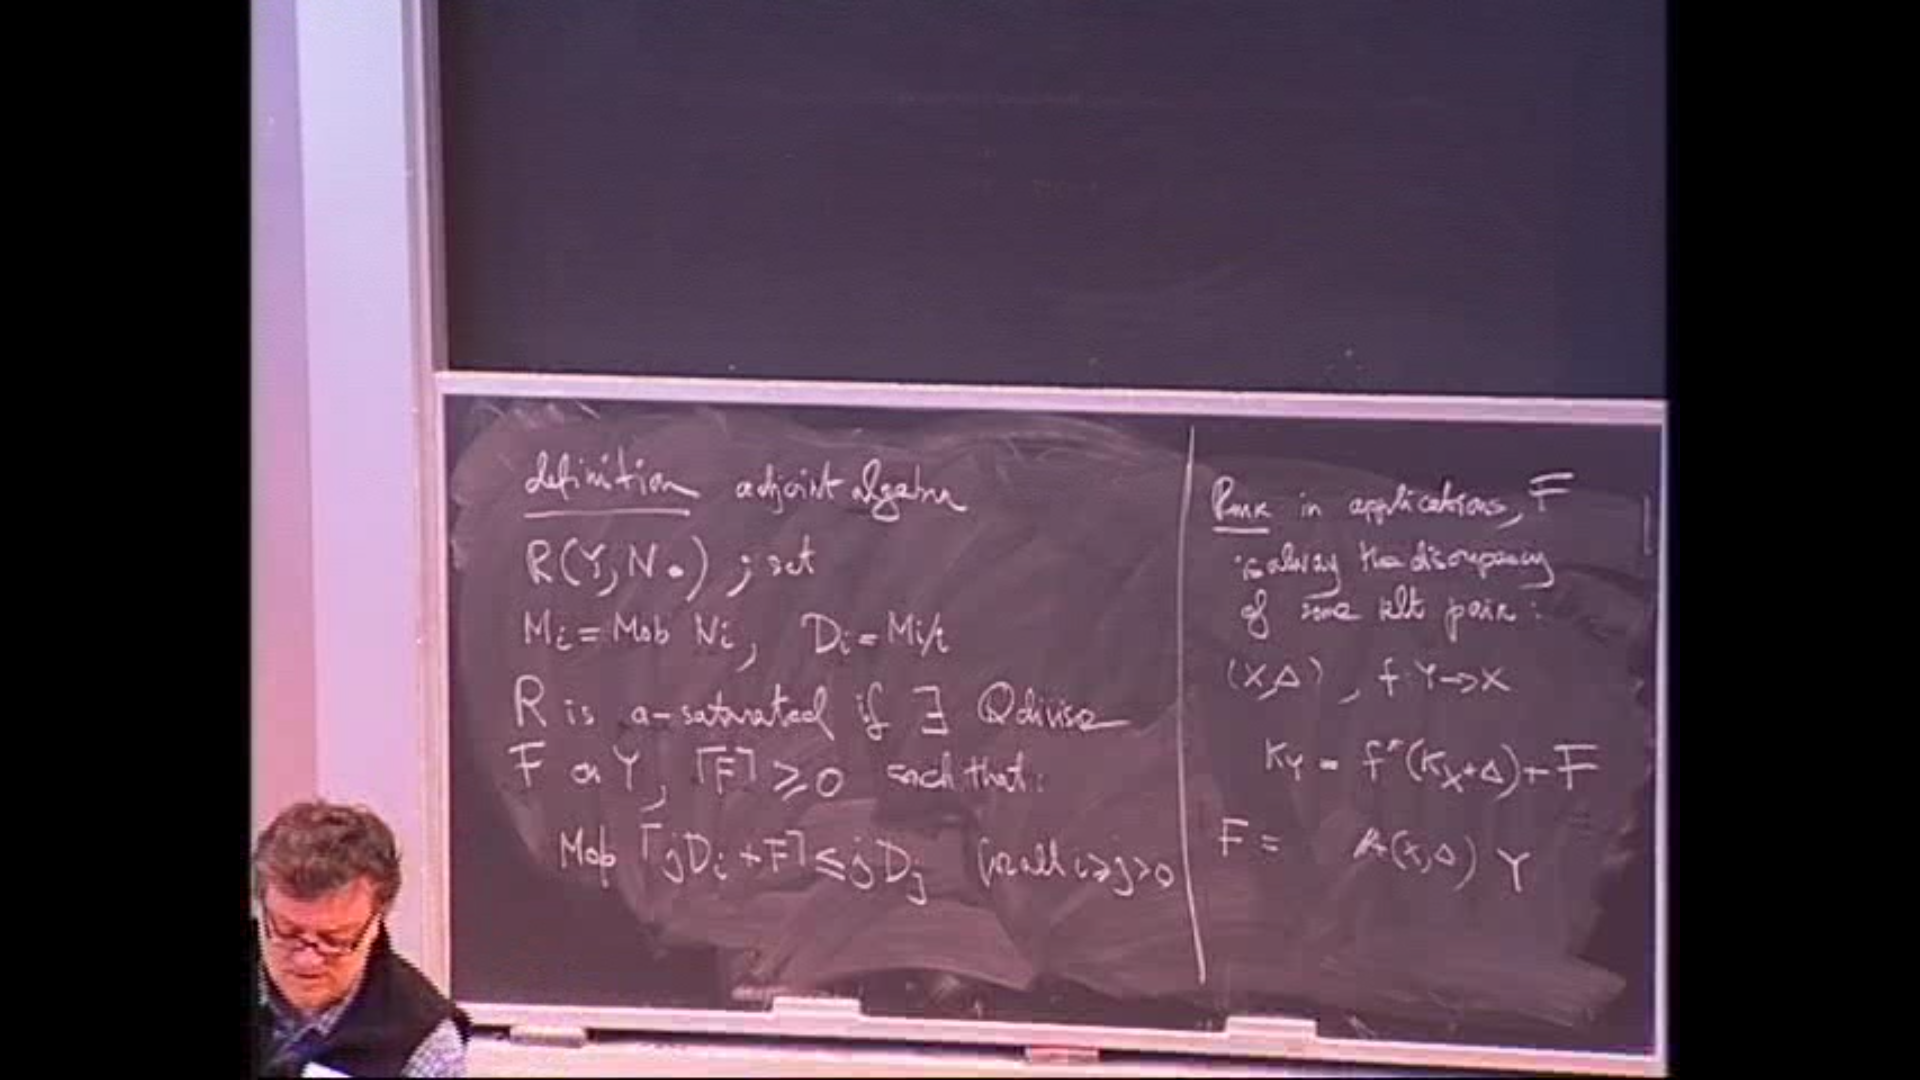 definition adjoint algebra
R(Y, N•) ; set
Mi = Mob Ni, Di = Mi/i
R is a-saturated if ∃ Q divisor
F on Y, ⌈F⌉ ≥ 0 such that:
Mob ⌈jDi + F⌉ ≤ jDj for all i ≥ j > 0
Rmk in applications, F
is alway the discrepancy
of some klt pair:
(X,Δ), f Y→X
KY = f*(KX+Δ) + F
F = A(X,Δ) Y